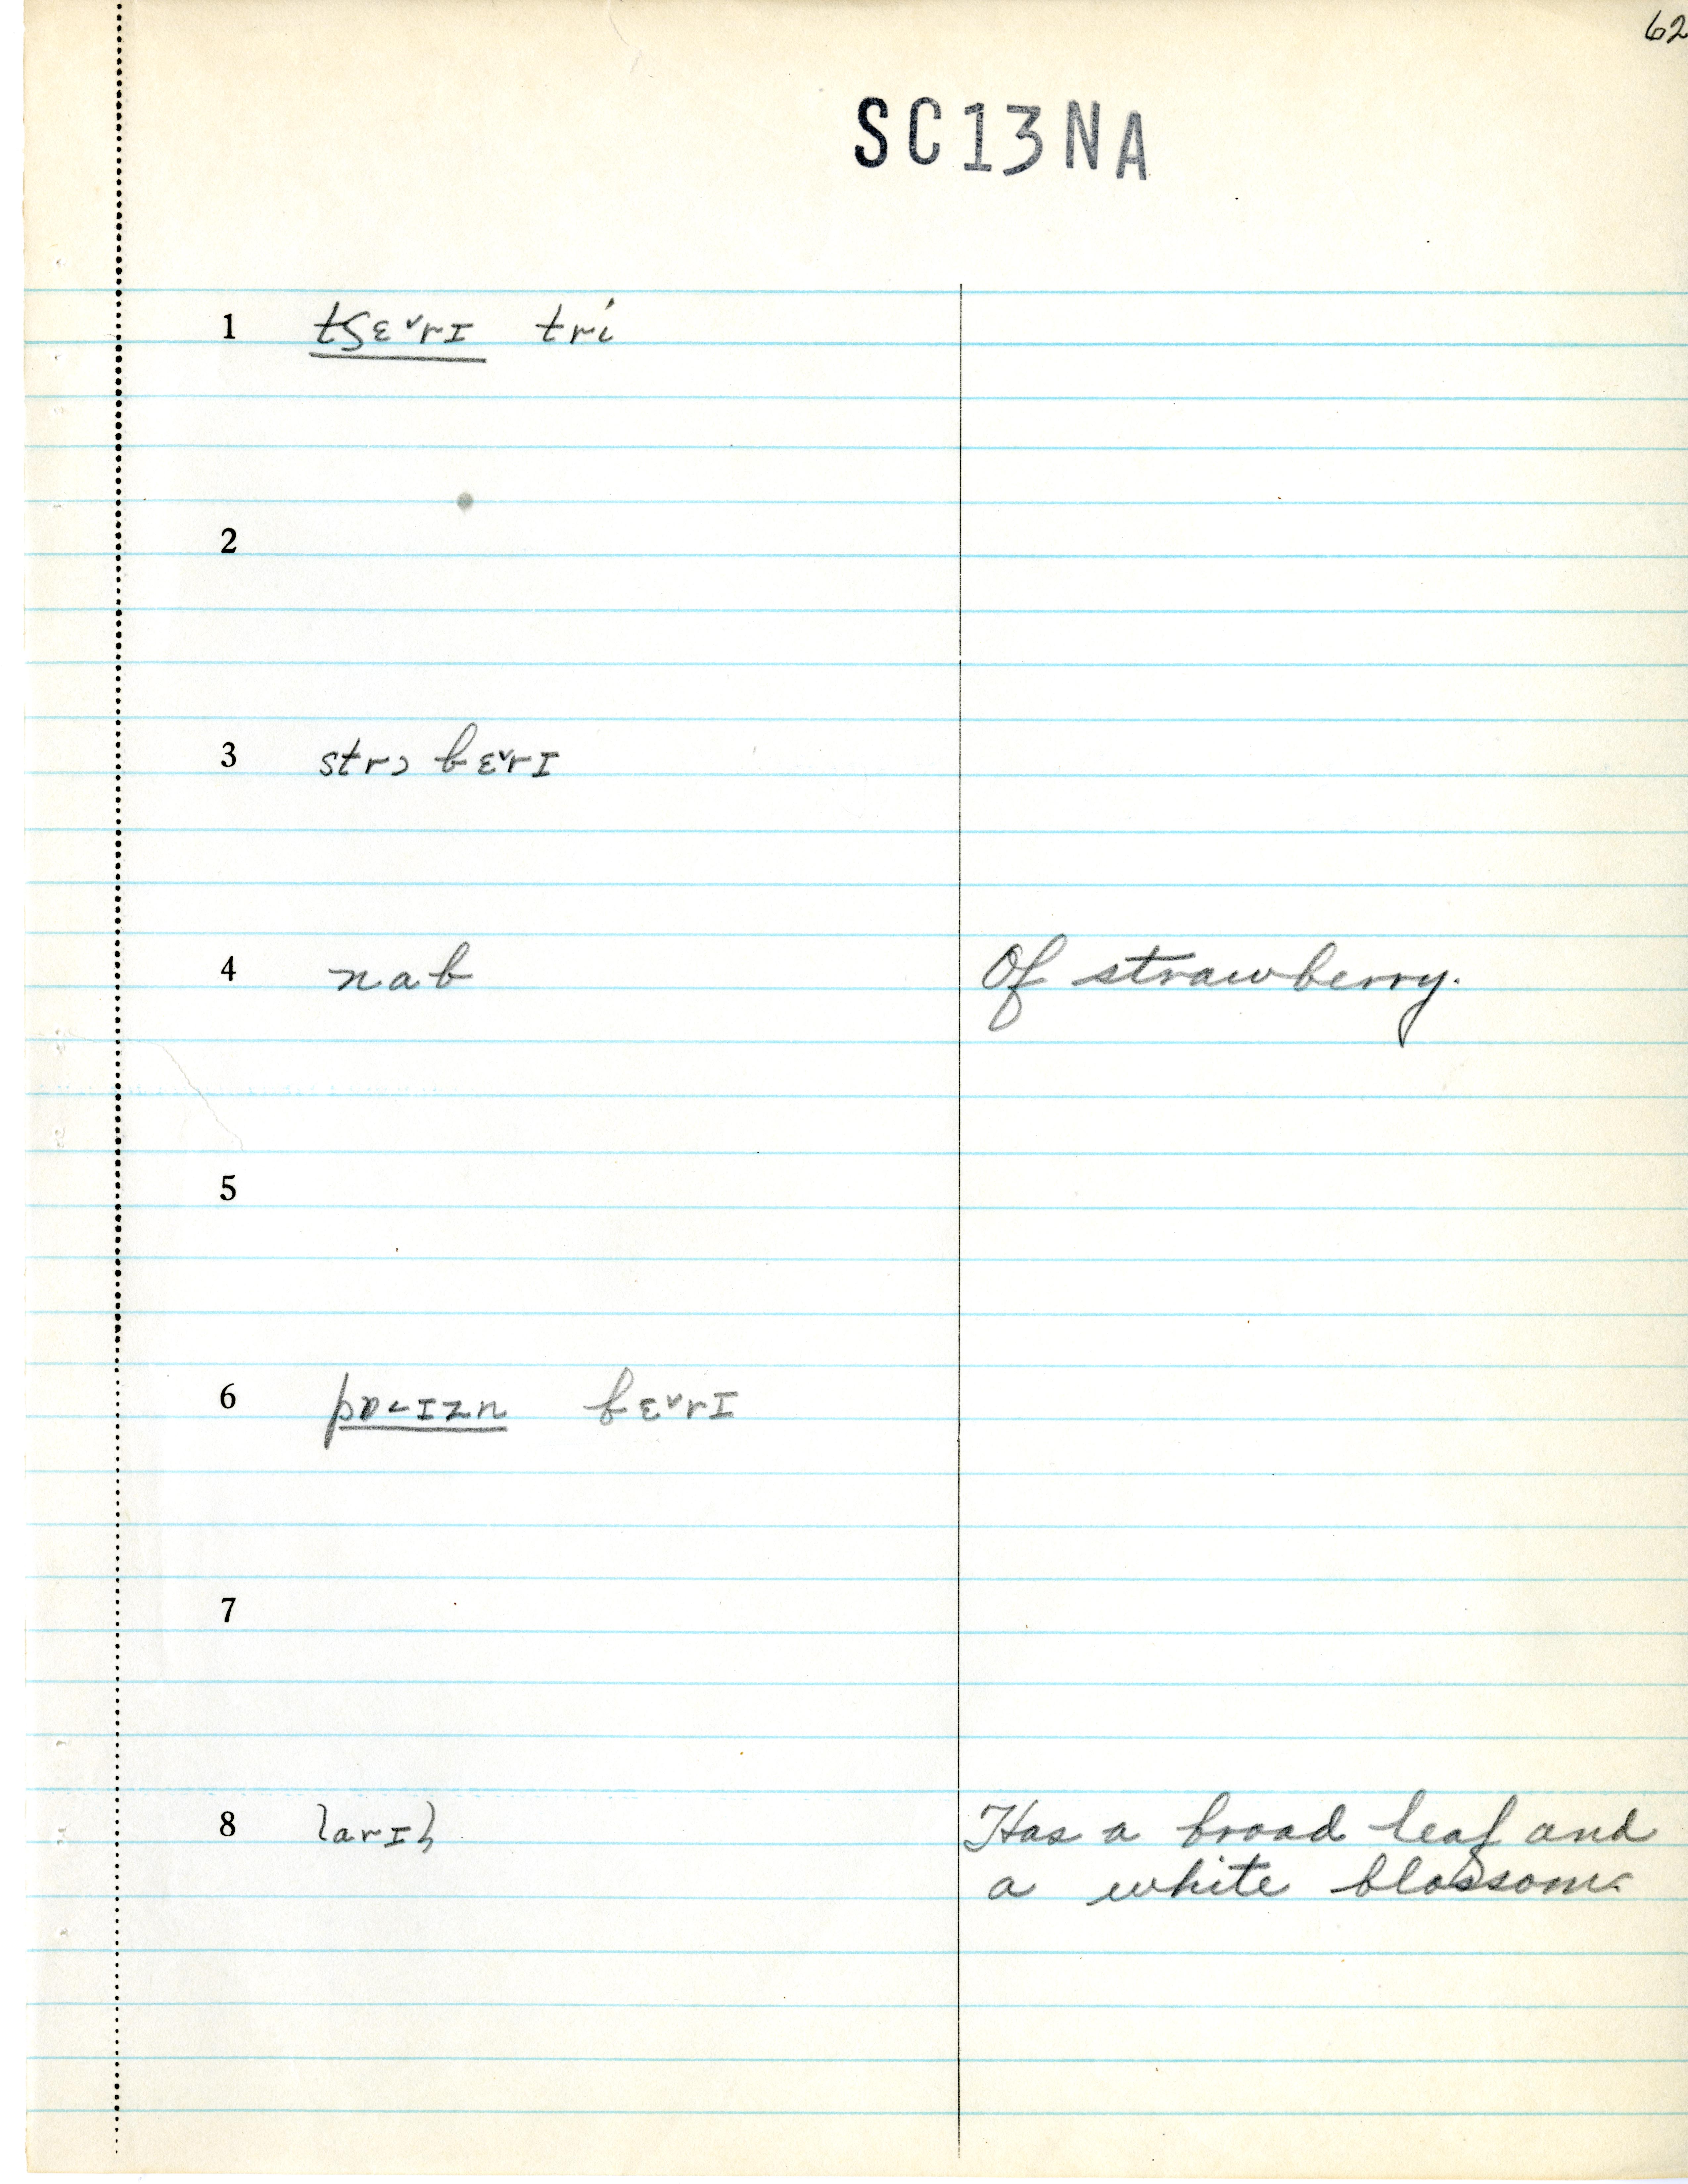 62
SC13NA
1 tʃɛ˅rɪ tri
2
3 strɔ bɛ˅rɪ
4 nab Of strawberry.
5
6 pɒ˂ɪzn bɛ˅rɪ
7
8 Has a broad leaf and
a white blossom.